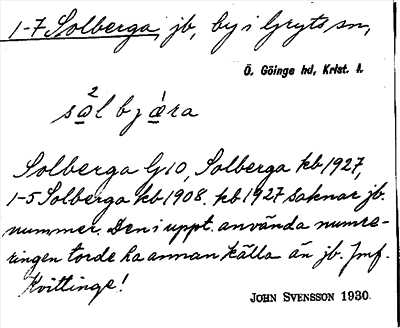 1-7 Solberga, jb, by i Gryts sn,
Ö. Göinge hd, Krist. l.
2
so̱l bjæ̱̀ra
Solberga G10, Solberga kb 1927,
1-5 Solberga kb 1908. kb 1927 saknar jb.
nummer. Den i uppt. använda numre-
ringen torde ha annan källa än jb. Jmf.
Kvittinge!
JOHN SVENSSON 1930.